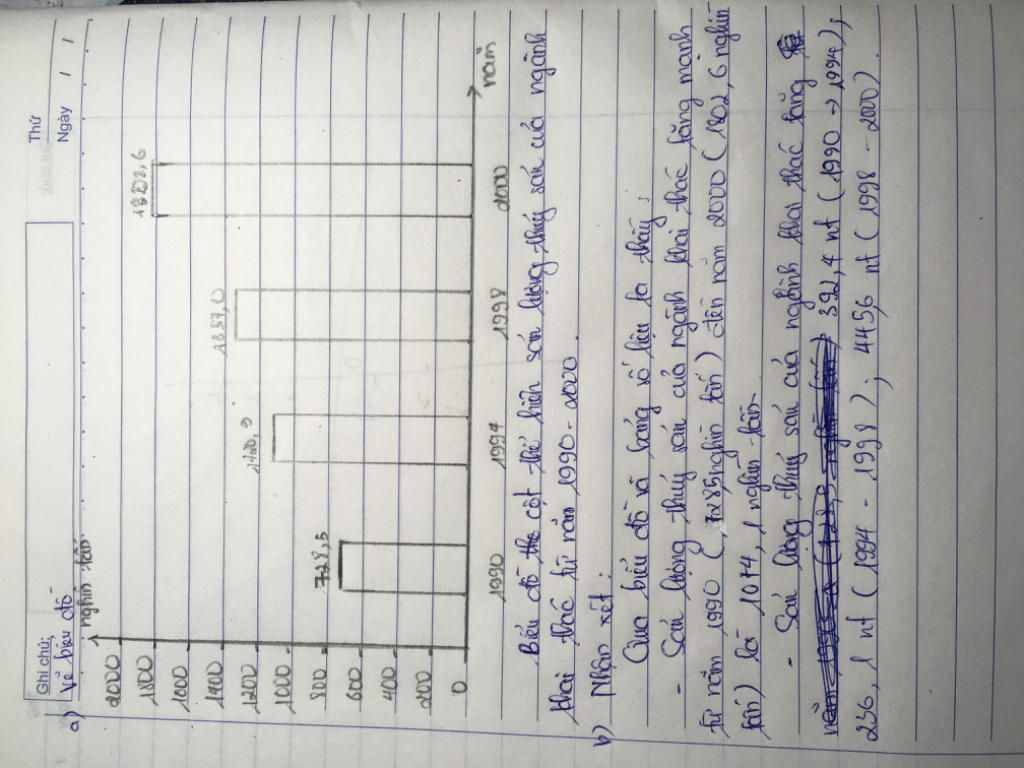 Ghi chú:
Thứ
Ngày / /
a) Vẽ biểu đồ
nghìn tấn
2000
1800
1600
1400
1200
1000
800
600
400
200
0
728,5
1120,9
1357,0
1802,6
1990
1994
1998
2000
năm
Biểu đồ the cột thể hiện sản lượng thuỷ sản của ngành
khai thác từ năm 1990-2000.
b) Nhận xét:
Qua biểu đồ và bảng số liệu ta thấy:
- Sản lượng thuỷ sản của ngành khai thác tăng mạnh
từ năm 1990 (728,5 nghìn tấn) đến năm 2000 (1802,6 nghìn
tấn) là 1074,1 nghìn tấn.
- Sản lượng thuỷ sản của ngành khai thác tăng
392,4 nt (1990 → 1994),
236,1 nt (1994 - 1998); 445,6 nt (1998 - 2000).